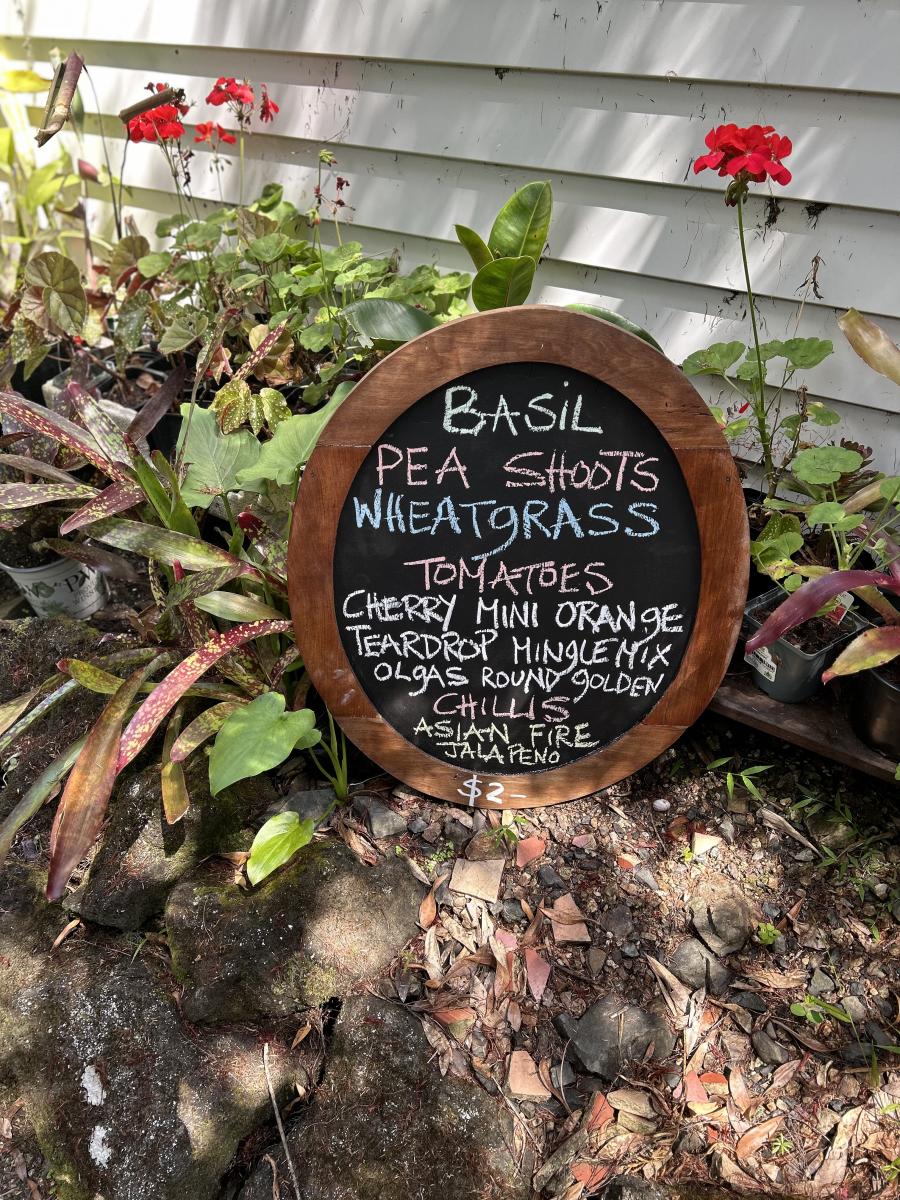 BASiL
PEA SHOOTS
WHEATgRASS
TOMATOES
CHERRY MINI ORANgE
TEARDROP MINgLE MIX
OLGAS ROUND gOLDEN
CHILLIS
ASIAN FIRE
JALAPENO
$2-